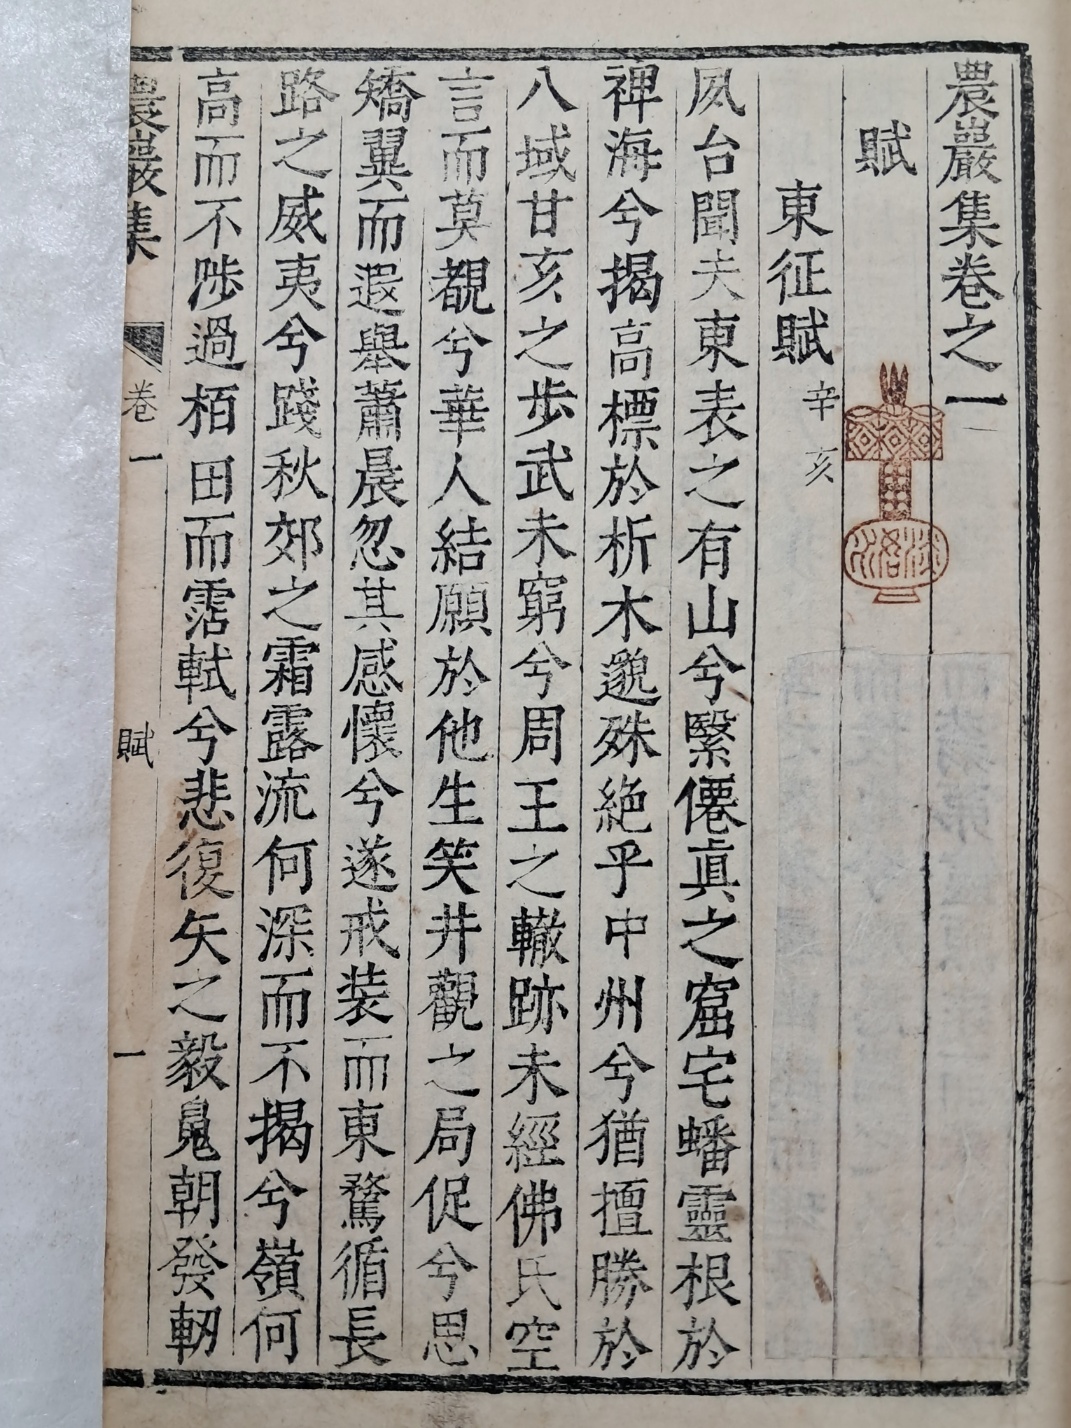 農巖集卷之一
賦
東征賦辛亥
夙台聞夫東表之有山兮繄僊眞之窟宅蟠靈根於
裨海兮揭高標於析木邈殊絶乎中州兮猶擅勝於
八域甘亥之步武未窮兮周王之轍跡未經佛氏空
言而莫覩兮華人結願於他生笑井觀之局促兮思
矯翼而遐舉蕭晨忽其感懷兮遂戒装而東騖循長
路之威夷兮踐秋郊之霜露流何深而不揭兮嶺何
高而不陟過栢田而霑軾兮悲復矢之毅鬼朝發軔
農巖集
卷一
賦
一